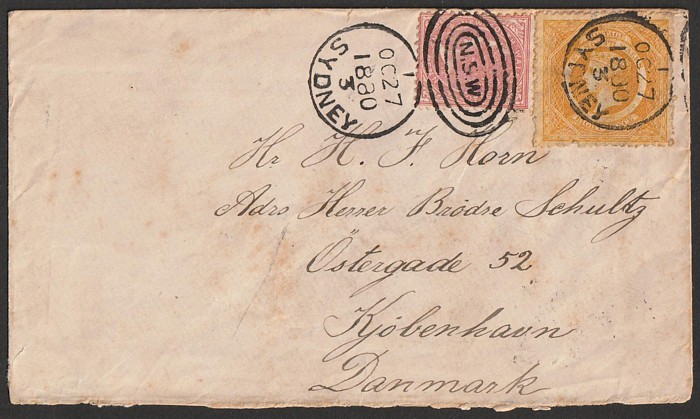 SYDNEY
OC27
1880
3
N.S.W
1
OC27
1880
3
SYDNEY
Hr H. F. Horn
Adrs Herrer Brödre Schultz
Östergade 52
Kjöbenhavn
Danmark